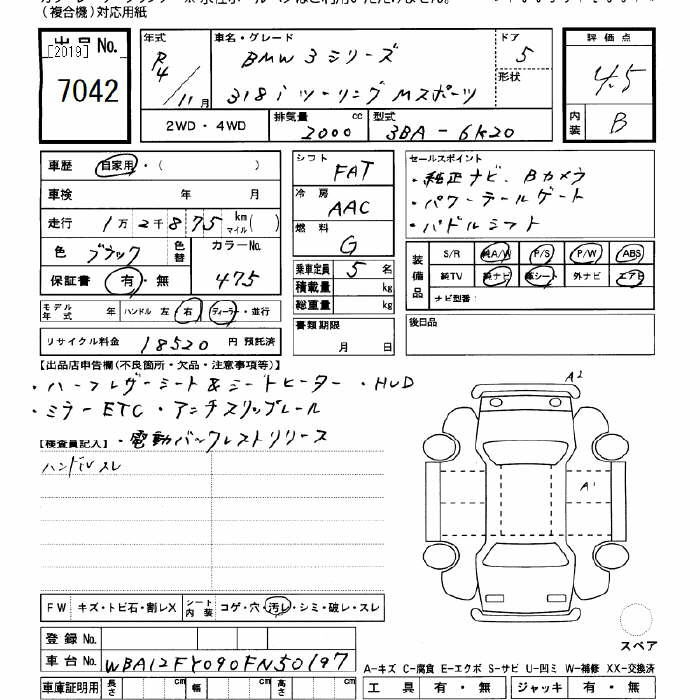 （複合機）対応用紙
出品 No.
[2019]
7042
年式 R4/11月
車名・グレード BMW 3シリーズ
318i ツーリング Mスポーツ
ドア 5
形状
2WD・4WD
排気量 2000 cc
型式 3BA-6K20
評価点
4.5
内装 B
車歴 自家用・（ ）
車検 年 月
走行 1万2千875 km マイル( )
色 ブラック 色替
カラーNo. 475
保証書 有・無
シフト FAT
冷房 AAC
燃料 G
セールスポイント
・純正ナビ、Bカメラ
・パワーテールゲート
・パドルシフト
乗車定員 5名
積載量 kg
総重量 kg
装備品 S/R 純A/W P/S P/W ABS
純TV 純ナビ 革シート 外ナビ エアB
ナビ型番：
モデル年式 年 ハンドル 左・右 ディーラー・並行
リサイクル料金 18520円 預託済
書類期限
月 日
後日品
【出品店申告欄(不良箇所・欠品・注意事項等)】
・ハーフレザーシート&シートヒーター ・HUD
・ミラーETC・アンチスリップレール
・電動バックレストリリース
【検査員記入】
ハンドルスレ
A2
A1
FW キズ・トビ石・割レX
シート内装 コゲ・穴・汚レ・シミ・破レ・スレ
登録 No.
車台 No. WBA12FY090FN50197
スペア
A-キズ C-腐食 E-エクボ S-サビ U-凹ミ W-補修 XX-交換済
車庫証明用 長さ cm 幅 cm 高さ cm
工具 有・無 ジャッキ 有・無